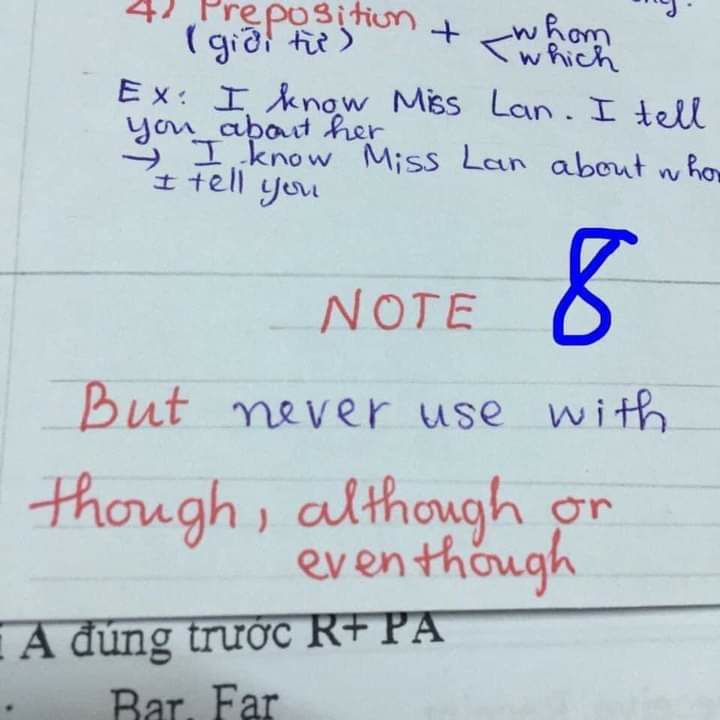 4) Preposition + whom
(giới từ) which
Ex: I know Miss Lan. I tell
you about her
→ I know Miss Lan about
I tell you
NOTE 8
But never use with
though, although or
eventhough
A đúng trước R+ PA
Bar, Far